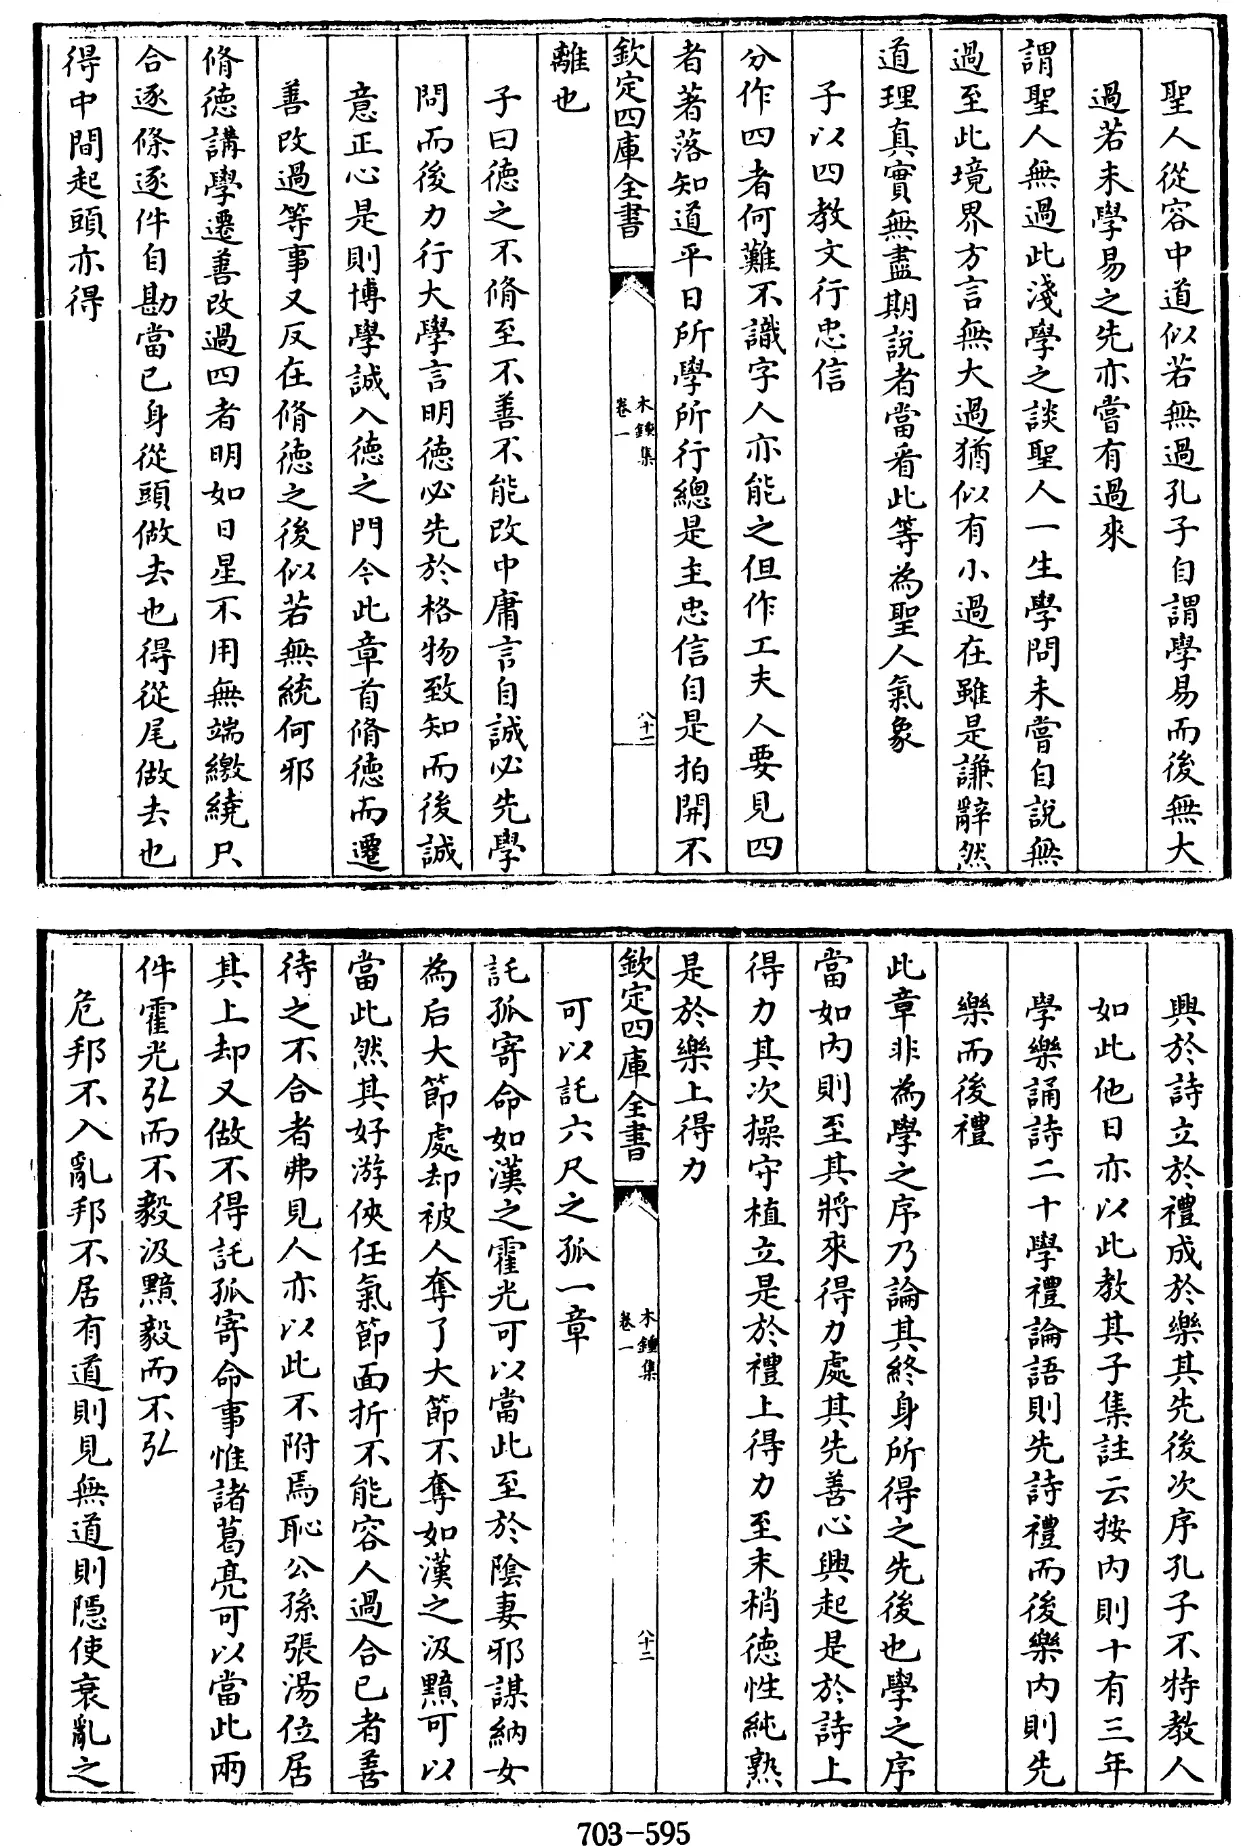 聖人從容中道似若無過孔子自謂學易而後無大
過若未學易之先亦嘗有過來
謂聖人無過此淺學之談聖人一生學問未嘗自說無
過至此境界方言無大過猶似有小過在雖是謙辭然
道理真實無盡期說者當看此等為聖人氣象
子以四教文行忠信
分作四者何難不識字人亦能之但作工夫人要見四
者著落知道平日所學所行總是主忠信自是拍開不
欽定四庫全書
木鍾集
卷一
八十一
離也
子曰德之不脩至不善不能改中庸言自誠必先學
問而後力行大學言明德必先於格物致知而後誠
意正心是則博學誠入德之門今此章首脩德而遷
善改過等事又反在脩德之後似若無統何邪
脩德講學遷善改過四者明如日星不用無端繳繞只
合逐條逐件自勘當已身從頭做去也得從尾做去也
得中間起頭亦得
興於詩立於禮成於樂其先後次序孔子不特教人
如此他日亦以此教其子集註云按內則十有三年
學樂誦詩二十學禮論語則先詩禮而後樂內則先
樂而後禮
此章非為學之序乃論其終身所得之先後也學之序
當如內則至其將來得力處其先善心興起是於詩上
得力其次操守植立是於禮上得力至末梢德性純熟
是於樂上得力
欽定四庫全書
木鍾集
卷一
八十二
可以託六尺之孤一章
託孤寄命如漢之霍光可以當此至於陰妻邪謀納女
為后大節處却被人奪了大節不奪如漢之汲黯可以
當此然其好游俠任氣節面折不能容人過合已者善
待之不合者弗見人亦以此不附焉恥公孫張湯位居
其上却又做不得託孤寄命事惟諸葛亮可以當此兩
件霍光弘而不毅汲黯毅而不弘
危邦不入亂邦不居有道則見無道則隱使衰亂之
703-595